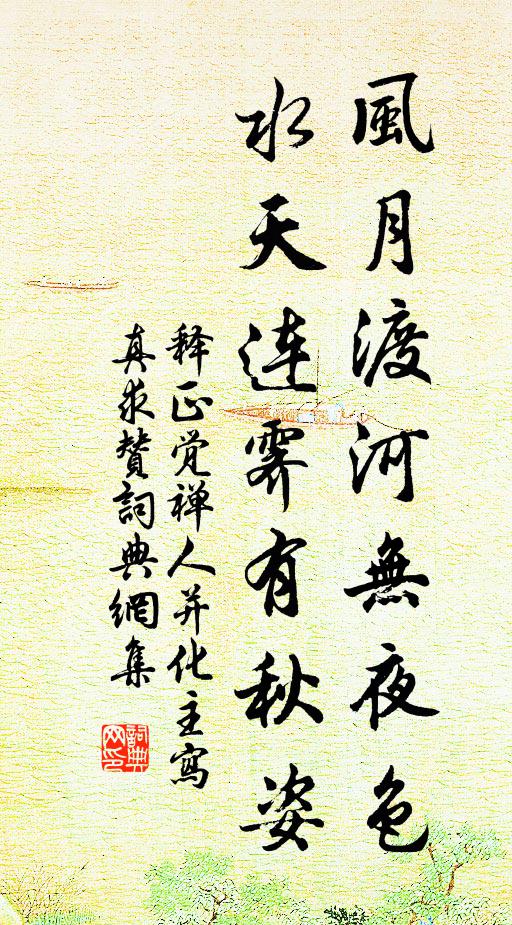 風月渡河無夜色
水天連霽有秋姿
释正觉禅人并化主寫
真求赞詞典網集
詞典网印